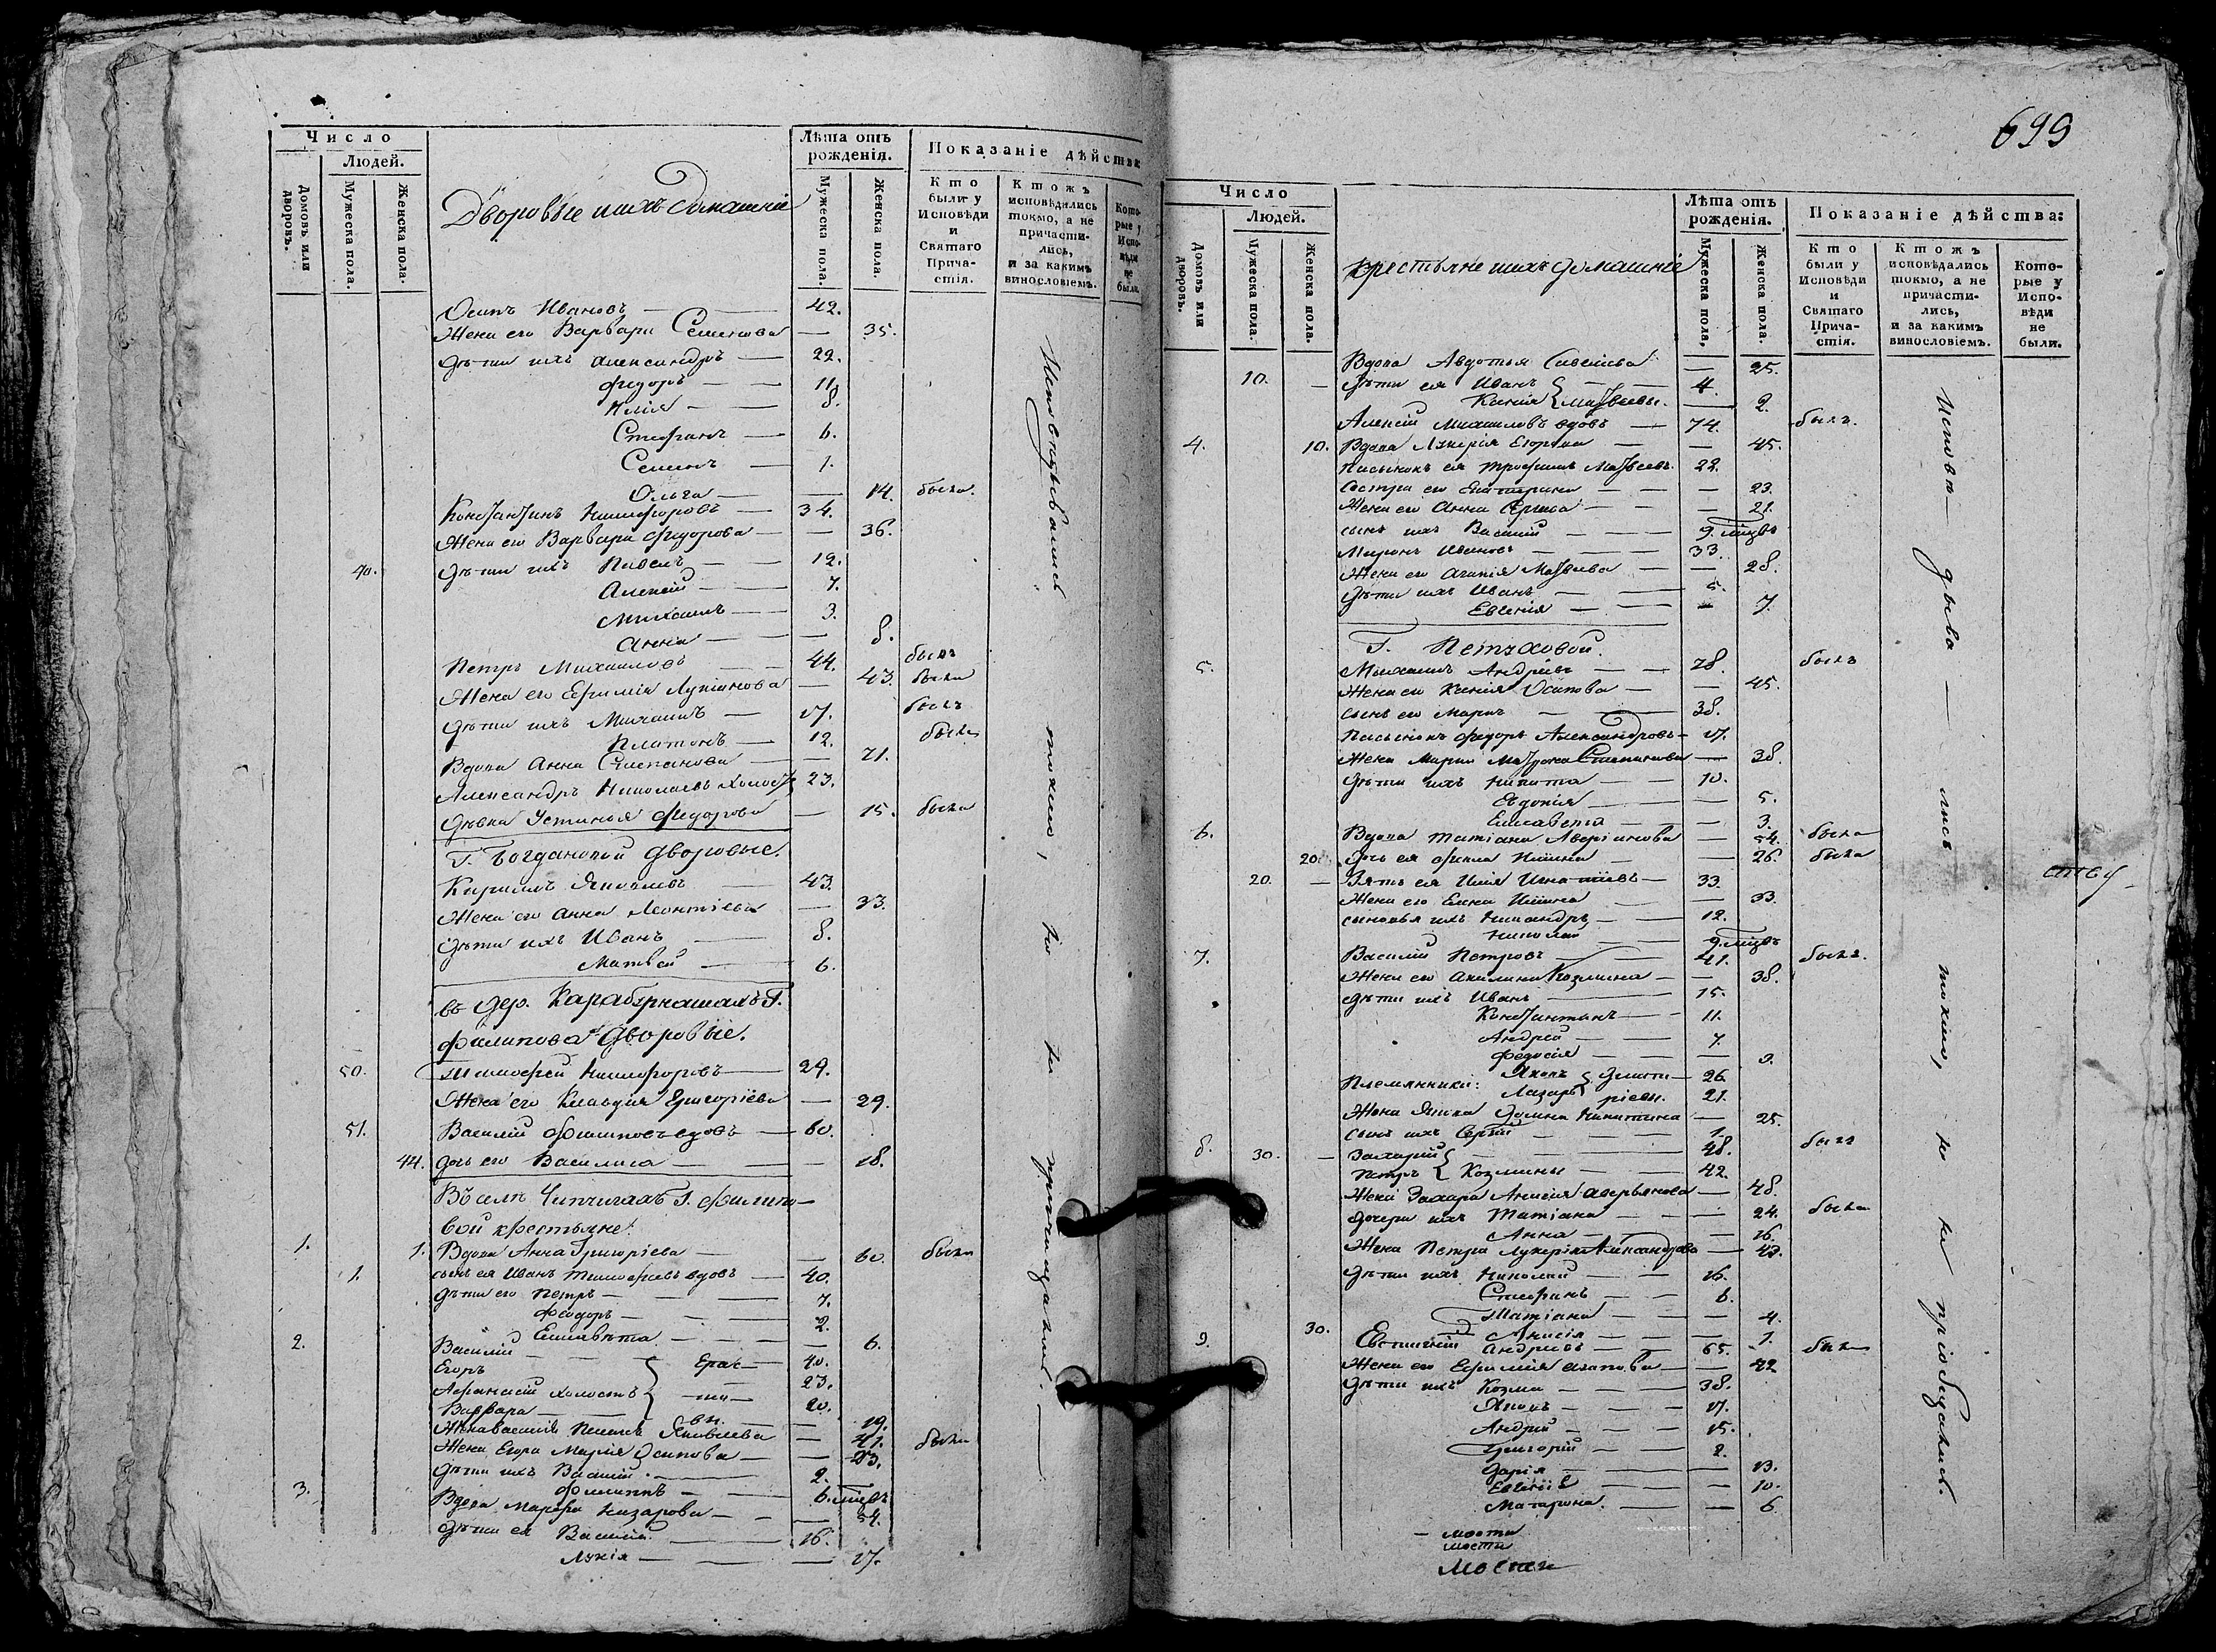 Число
Людей.
Домовъ или дворовъ.
Мужеска пола.
Женска пола.
Дворовые и ихъ домашніе
Лѣта отъ рожденія.
Мужеска пола.
Женска пола.
Показаніе дѣйства:
Кто были у Исповѣди и Святаго Причастія.
Ктожъ исповѣдались токмо, а не причастились, и за какимъ винословіемъ.
Которые у Исповѣди не были.
Осипъ Ивановъ — 42.
Жена его Варвара Семенова — 35.
Дѣти ихъ Александръ — 22.
Федоръ — 11.
Илія — 8.
Стефанъ — 6.
Семенъ — 1.
Ольга — 14. была.
Константинъ Никифоровъ — 34.
Жена его Варвара Федорова — 36.
40. Дѣти ихъ Павелъ — 12.
Алексей — 7.
Михаилъ — 3.
Анна — 8.
Петръ Михаиловъ — 44. былъ
Жена его Ефимія Лукіанова — 43. была
Дѣти ихъ Михаилъ — 17. былъ
Платонъ — 12. былъ
Вдова Анна Степанова — 71.
Александръ Николаевъ холостъ 23.
Дѣвка Устинья Федорова — 15. была
Г. Богдановой дворовые.
Кириллъ Яковлевъ 43.
Жена его Анна Леонтіева — 33.
Дѣти ихъ Иванъ — 8.
Матвей — 6.
въ дер. Карабурнашахъ Г.
Филипова дворовые.
50. Тимофей Никифоровъ — 29.
Жена его Клавдия Григоріева — 29.
51. Василій Филиповъ вдовъ — 60.
44. дочь его Василиса — 18.
Въ селѣ Чипчигахъ Г. Филипо-
вой крестьяне.
1. 1. Вдова Анна Григоріева — 60. была
1. сынъ ея Иванъ Тимофеевъ вдовъ — 40.
Дѣти его Петръ — 7.
Феодоръ — 2.
Елисавета — 6.
2. Василій — 40.
Егоръ } Ерас- 23.
Афанасій холостъ } -то- 20.
Варвара } -вы. 19.
Жена Василія Пелагея Яковлева — 41. была
Жена Егора Марія Осипова — 23.
Дѣти ихъ Василій — 2.
Филиппъ — 6. мцвъ
3. Вдова Марфа Назарова — 54.
Дѣти ея Василій — 16.
Лукія — 17.
Исповѣдывались токмо, но не причащались.
699
Число
Людей.
Домовъ или дворовъ.
Мужеска пола.
Женска пола.
Крестьяне и ихъ домашніе
Лѣта отъ рожденія.
Мужеска пола.
Женска пола.
Показаніе дѣйства:
Кто были у Исповѣди и Святаго Причастія.
Ктожъ исповѣдались токмо, а не причастились, и за какимъ винословіемъ.
Которые у Исповѣди не были.
Вдова Авдотья Савельева — 25.
10. — Дѣти ея Иванъ } — 4.
Ксенія } Матвеевы. — 2.
Алексій Михаиловъ вдовъ — 74. былъ.
4. 10. Вдова Лукерія Егорова — 45.
Пасынокъ ея Трофимъ Матвеевъ. 22.
Сестра его Екатерина — 23.
Жена его Анна Сергеева — 21.
сынъ ихъ Василій — 9. мцвъ
Миронъ Ивановъ — 33.
Жена его Агапія Матвеева — 28.
Дѣти ихъ Иванъ — 5.
Евгенія — 7.
Г. Петуховой.
5. Михаилъ Андреевъ — 78. былъ
Жена его Ксенія Осипова — 45.
сынъ его Маркъ — 38.
Пасынокъ Федоръ Александровъ — 17.
Жена Марка Матрона Степанова — 38.
Дѣти ихъ Никита — 10.
Евдокія — 5.
Елисавета — 3.
6. Вдова Татіана Аверіанова — 54. была
20. Дочь ея Фекла Ильина — 26. была
20. — Зять ея Илія Игнатіевъ — 33.
Жена его Елена Ильина — 33.
сыновья ихъ Никандръ — 12.
Николай — 9. мцвъ
7. Василій Петровъ — 41. былъ.
Жена его Акилина Козмина — 38.
Дѣти ихъ Иванъ — 15.
Константинъ — 11.
Андрей — 7.
Федосія — 9.
Племянники: Яковъ } Дмит- 26.
Лазарь } ріевы. 21.
Жена Якова Домна Никитина — 25.
сынъ ихъ Сергій — 1.
8. 30. — Захарій } — 48. былъ
Петръ } Козмины — 42.
Жена Захара Анисія Аверьянова — 48.
Дочери ихъ Татіана — 24. была
Анна — 16.
Жена Петра Лукерія Александрова — 43.
Дѣти ихъ Николай — 16.
Стефанъ — 6.
Татіана — 4.
30. Анисія — 1.
9. Евстигній Андреевъ — 65. былъ
Жена его Ефимія Агапова — 42
Дѣти ихъ Козма — 38.
Яковъ — 17.
Андрей — 15.
Григорій — 2.
Дарія — 13.
Евгенія — 10.
Матрона — 6.
Исповѣдыва — лись токмо, но не пріобщались.